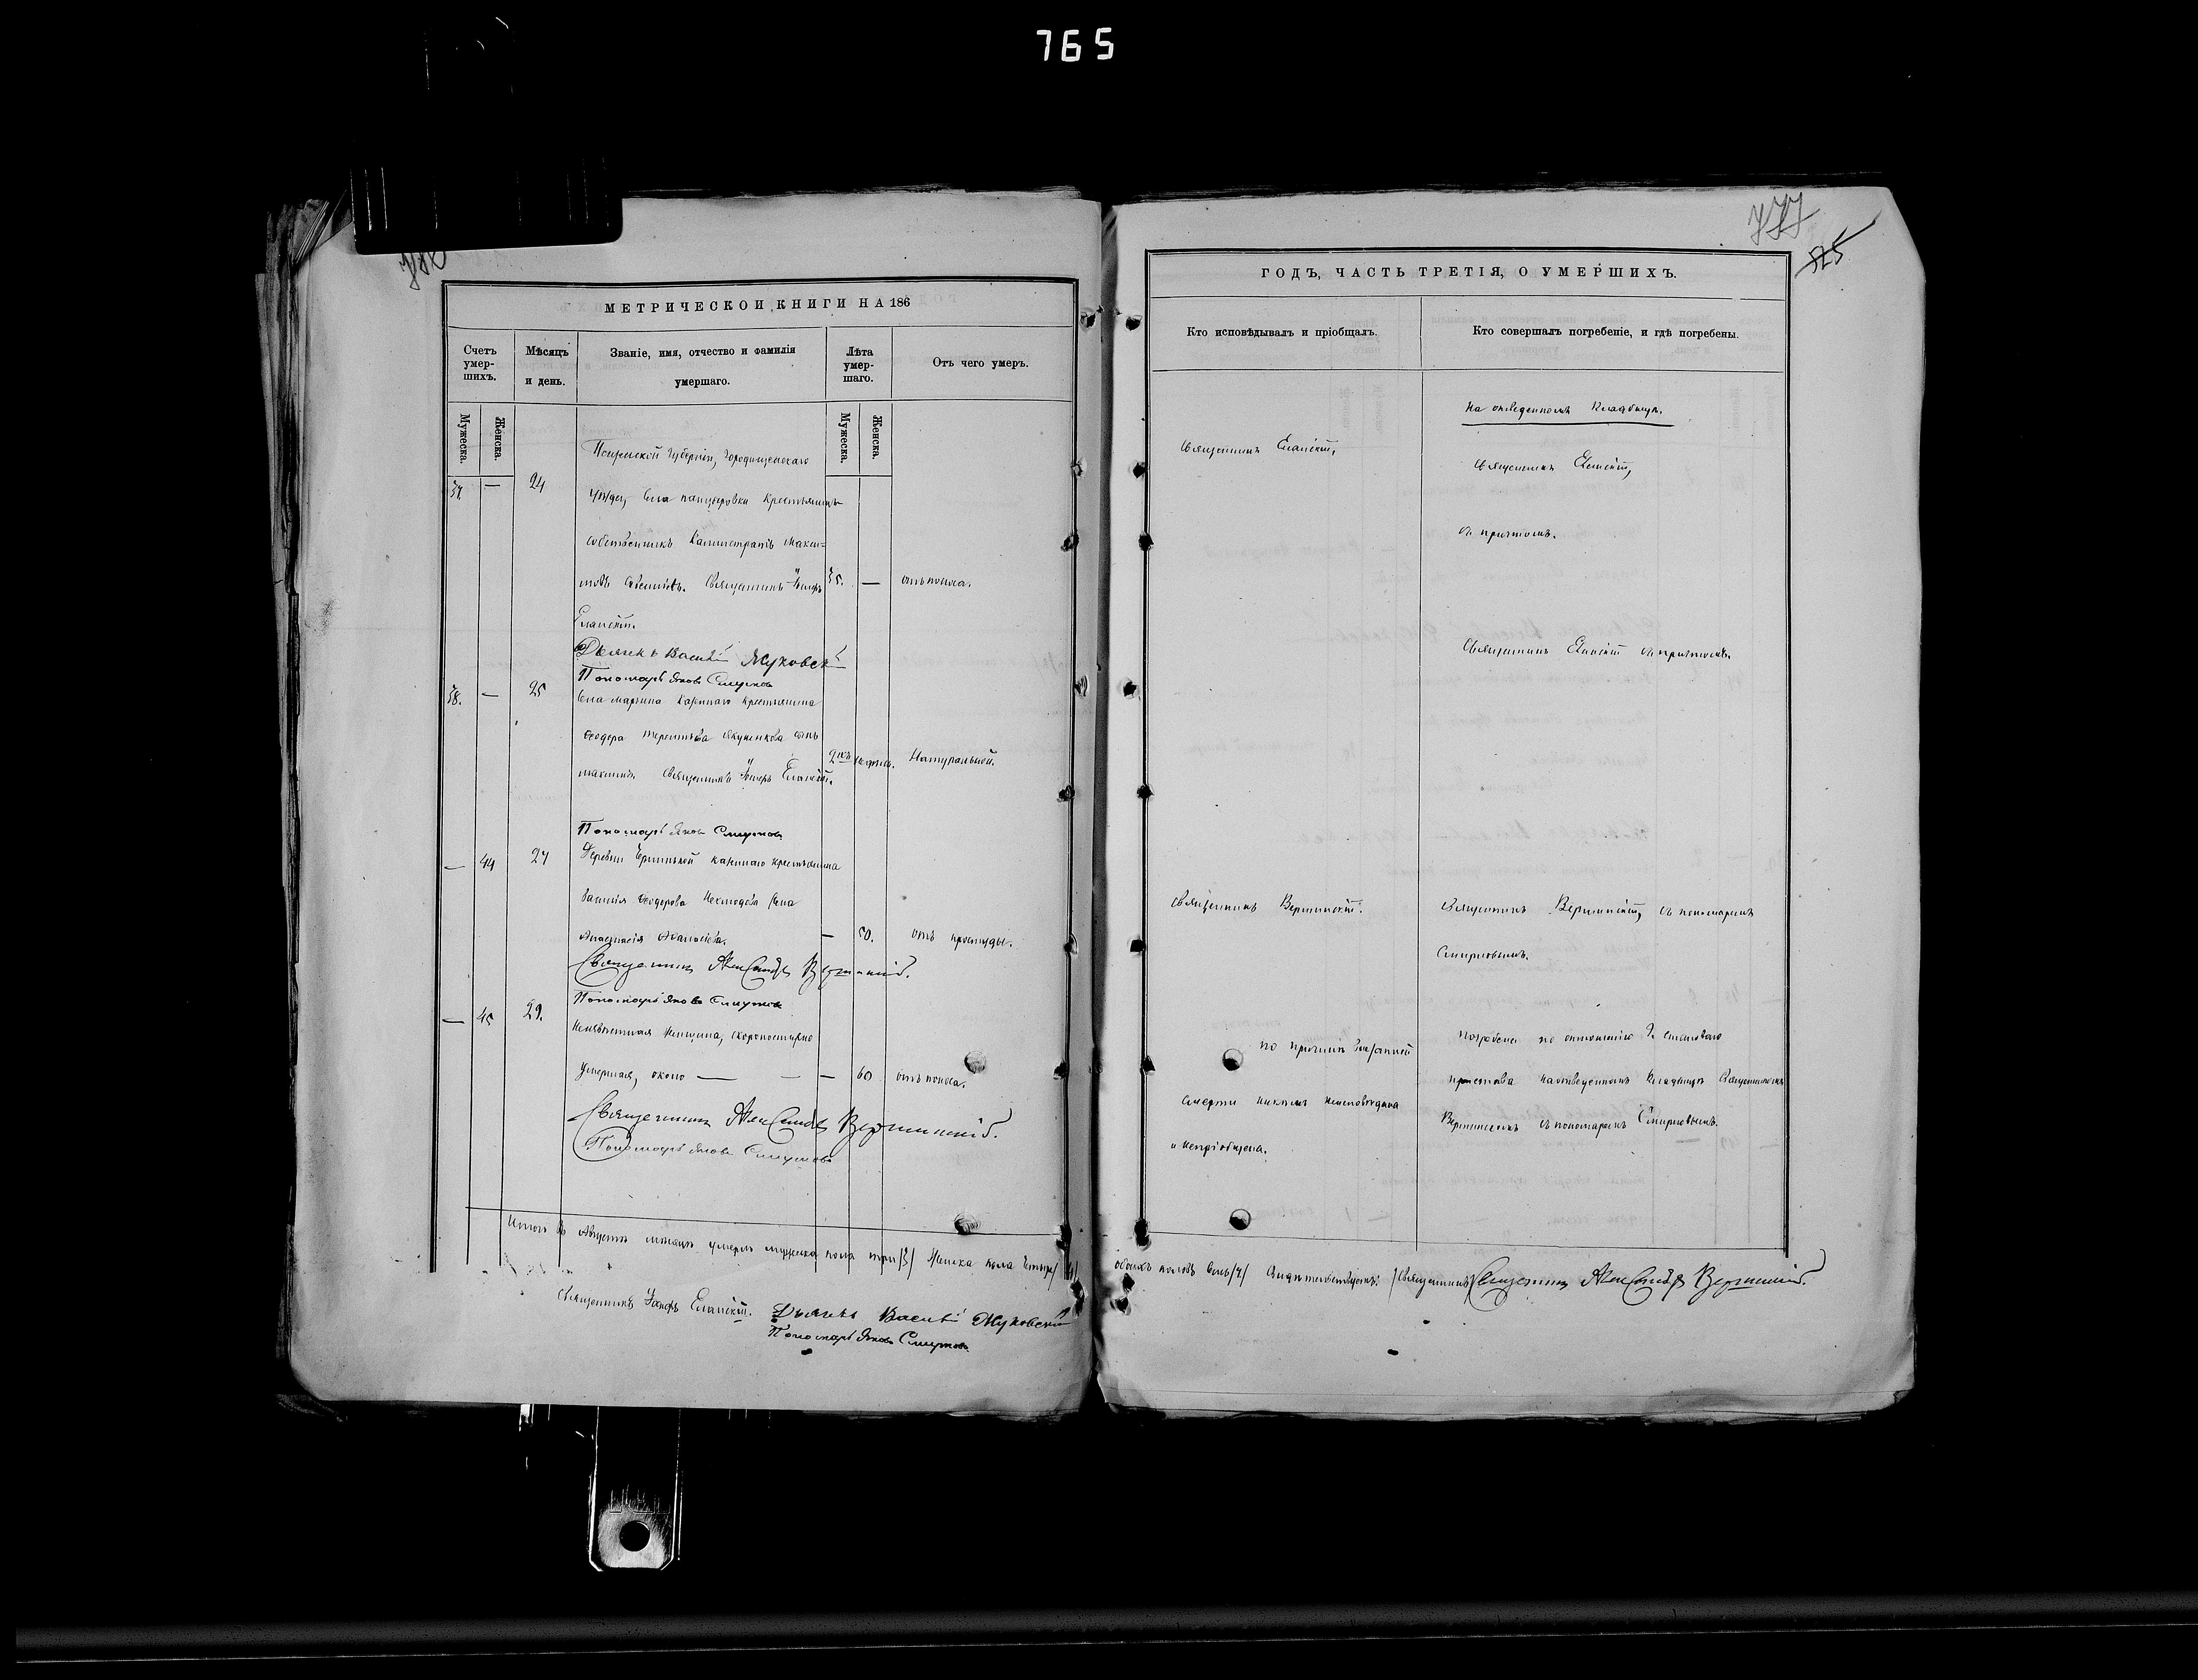 765
777
525
МЕТРИЧЕСКОИ КНИГИ НА 186
Счетъ умер-шихъ.
Мѣсяцъ и день.
Званіе, имя, отчество и фамилія умершаго.
Лѣта умер-шаго.
Отъ чего умеръ.
Мужеска.
Женска.
Мужеска.
Женска.
37. — 24
Губерніи, Городищенскаго
уѣзда, села крестьянинъ
собственникъ Каллистратъ Макси=
мовъ Священникъ Іосифъ 35. — отъ поноса.
Еланскій.
Дьячекъ Василій Жуковскій
Пономарь Яковъ Смирновъ
38. — 25
Села Маркина крестьянина
Ѳеодора Терентьева сынъ
Священникъ Іосифъ Еланскій. Натуральной.
Пономарь Яковъ Смирновъ
— 44 27
Деревни крестьянина
Василія Ѳеодорова жена
Анастасія — 50. отъ простуды.
Священникъ Александръ Вершинскій.
Пономарь Яковъ Смирновъ
— 45 29.
Неизвѣстная женщина, скоропостижно
умершая, около — — — 60 отъ поноса.
Священникъ Александръ Вершинскій.
Пономарь Яковъ Смирновъ
Итого въ Августѣ мѣсяцѣ умерло мужеска пола три /3/ Женска пола четыре /4/
Священникъ Іосифъ Еланскій.
Дьячекъ Василій Жуковскій
Пономарь Яковъ Смирновъ
ГОДЪ, ЧАСТЬ ТРЕТІЯ, О УМЕРШИХЪ.
Кто исповѣдывалъ и пріобщалъ.
Кто совершалъ погребеніе, и гдѣ погребены.
На отведенномъ кладбищѣ.
Священникъ Еланскій,
Священникъ Еланскій,
съ причтомъ.
Священникъ Еланскій съ причтомъ.
Священникъ Вершинскій.
Священникъ Вершинскій, съ пономаремъ
Смирновымъ.
по причинѣ внезапной
смерти никѣмъ неисповѣдана
и непріобщена.
Погребена по отношенію 2. становаго
пристава на отведенномъ кладбищѣ Священникомъ
Вершинскимъ съ пономаремъ Смирновымъ.
обоихъ половъ семь /7/ Священникъ Александръ Вершинскій.